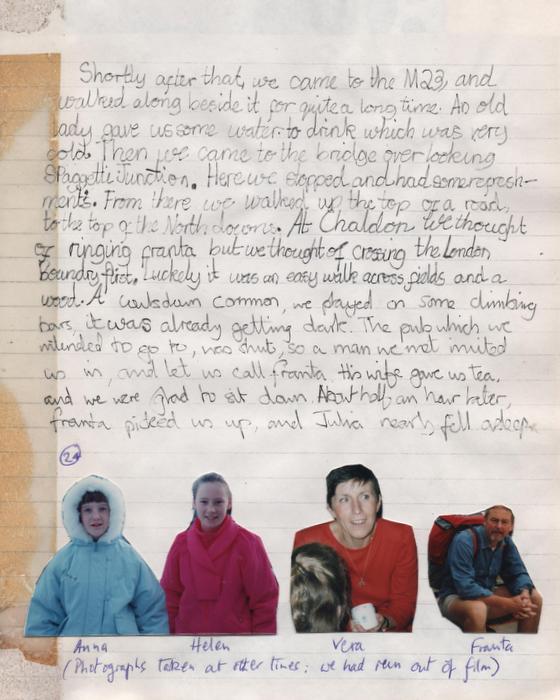 Shortly after that, we came to the M23, and
walked along beside it for quite a long time. An old
lady gave us some water to drink which was very
cold. Then we came to the bridge overlooking
Spagetti Junction. Here we stopped and had some refresh-
ments. From there we walked up the top of a road,
to the top of the North downs. At Chaldon we thought
of ringing franta but we thought of crossing the London
Boundry first. Luckely it was an easy walk across fields and a
wood. A coulsdown common, we played on some climbing
bars, it was already getting dark. The pub which we
intended to go to, was shut, so a man we met invited
us in, and let us call franta. His wife gave us tea,
and we were glad to sit down. About half an hour later,
franta picked us up, and Julia nearly fell asleep
24
Anna Helen Vera Franta
(Photographs taken at other times: we had run out of film)